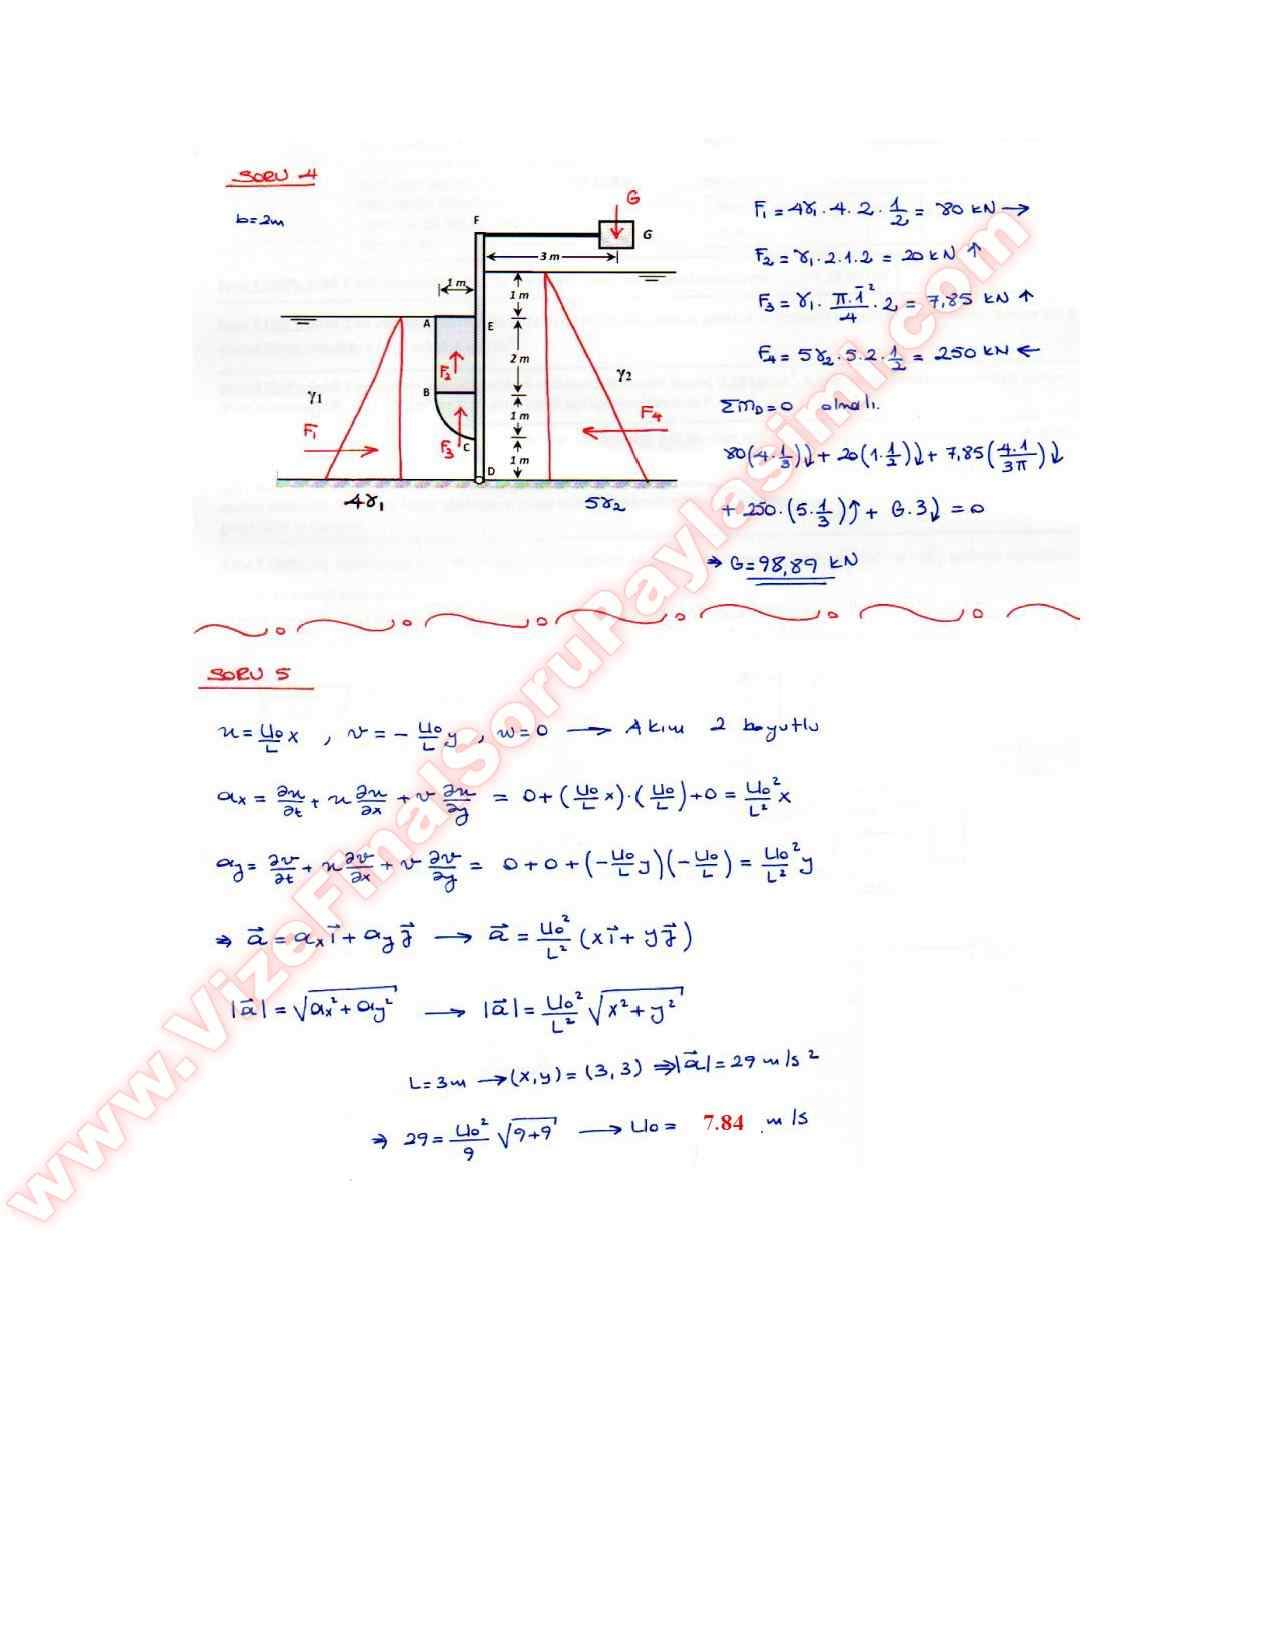 SORU 4
b=2m
F
G
G
3 m
1 m
1 m
A
E
2 m
F₂
B
γ₁
γ₂
F₁
F₄
1 m
F₃
C
1 m
D
4γ₁
5γ₂
F₁ = 4γ₁ . 4 . 2 . 1/2 = 80 kN →
F₂ = γ₁ . 2 . 1 . 2 = 20 kN ↑
F₃ = γ₁ . π.1²/4 . 2 = 7,85 kN ↑
F₄ = 5γ₂ . 5 . 2 . 1/2 = 250 kN ←
ΣM_D = 0 olmalı.
80(4.1/3)↓ + 20(1.1/2)↓ + 7,85(4.1/3π)↓
+ 250.(5.1/3)↑ + G.3↓ = 0
⇒ G = 98,89 kN
SORU 5
u = U₀/L x , v = - U₀/L y , w = 0 → Akım 2 boyutlu
aₓ = ∂u/∂t + u ∂u/∂x + v ∂u/∂y = 0 + (U₀/L x).(U₀/L) + 0 = U₀²/L² x
a_y = ∂v/∂t + u ∂v/∂x + v ∂v/∂y = 0 + 0 + (-U₀/L y)(-U₀/L) = U₀²/L² y
⇒ a⃗ = aₓ i⃗ + a_y j⃗ → a⃗ = U₀²/L² (x i⃗ + y j⃗)
|a⃗| = √(aₓ² + a_y²) → |a⃗| = U₀²/L² √(x² + y²)
L = 3m → (x,y) = (3,3) ⇒ |a⃗| = 29 m/s²
⇒ 29 = U₀²/9 √(9+9) → U₀ = 7.84 m/s
www.VizeFinalSoruPaylasimi.com